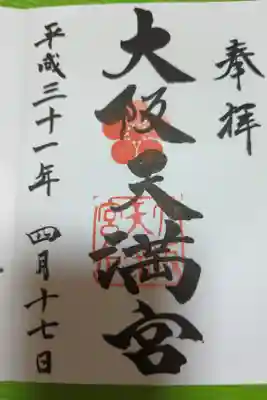 奉拝
大阪天満宮
平成三十一年 四月十七日